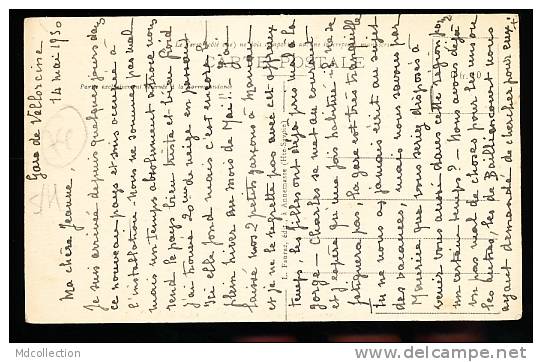 Gare de Vallorcine
14 mai 1930
Ma chère Jeanne,
Je suis arrivée depuis quelques jours dans
ce nouveau pays et suis occupée à
l'installation. Nous ne sommes pas mal
mais un temps absolument atroce nous
rend le pays bien triste et bien froid
j'ai trouvé 20cm de neige en passant
Ici elle fond mais c'est encore
plein hiver au mois de Mai!! J'ai
laissé mes 2 petits garçons à Maman
et je ne le regrette pas avec cet affreux
temps les filles ont déjà pris mal à la
gorge - Charles se met au courant
et j'espère qu'une fois habitué il ne se
fatiguera pas, la gare est très tranquille
Tu ne nous as jamais écrit au sujet
des vacances, mais nous savons par
Maurice que vous seriez disposés à
venir vous aussi dans cette région pour
un certain temps? - Nous avons déjà
vu pas mal de choses pour les uns ou
les autres, les de Bailliencourt nous
ayant demandé de chercher pour eux
CARTE POSTALE
Annemasse (Hte-Savoie)
Mdcollection
www.delcampe.net